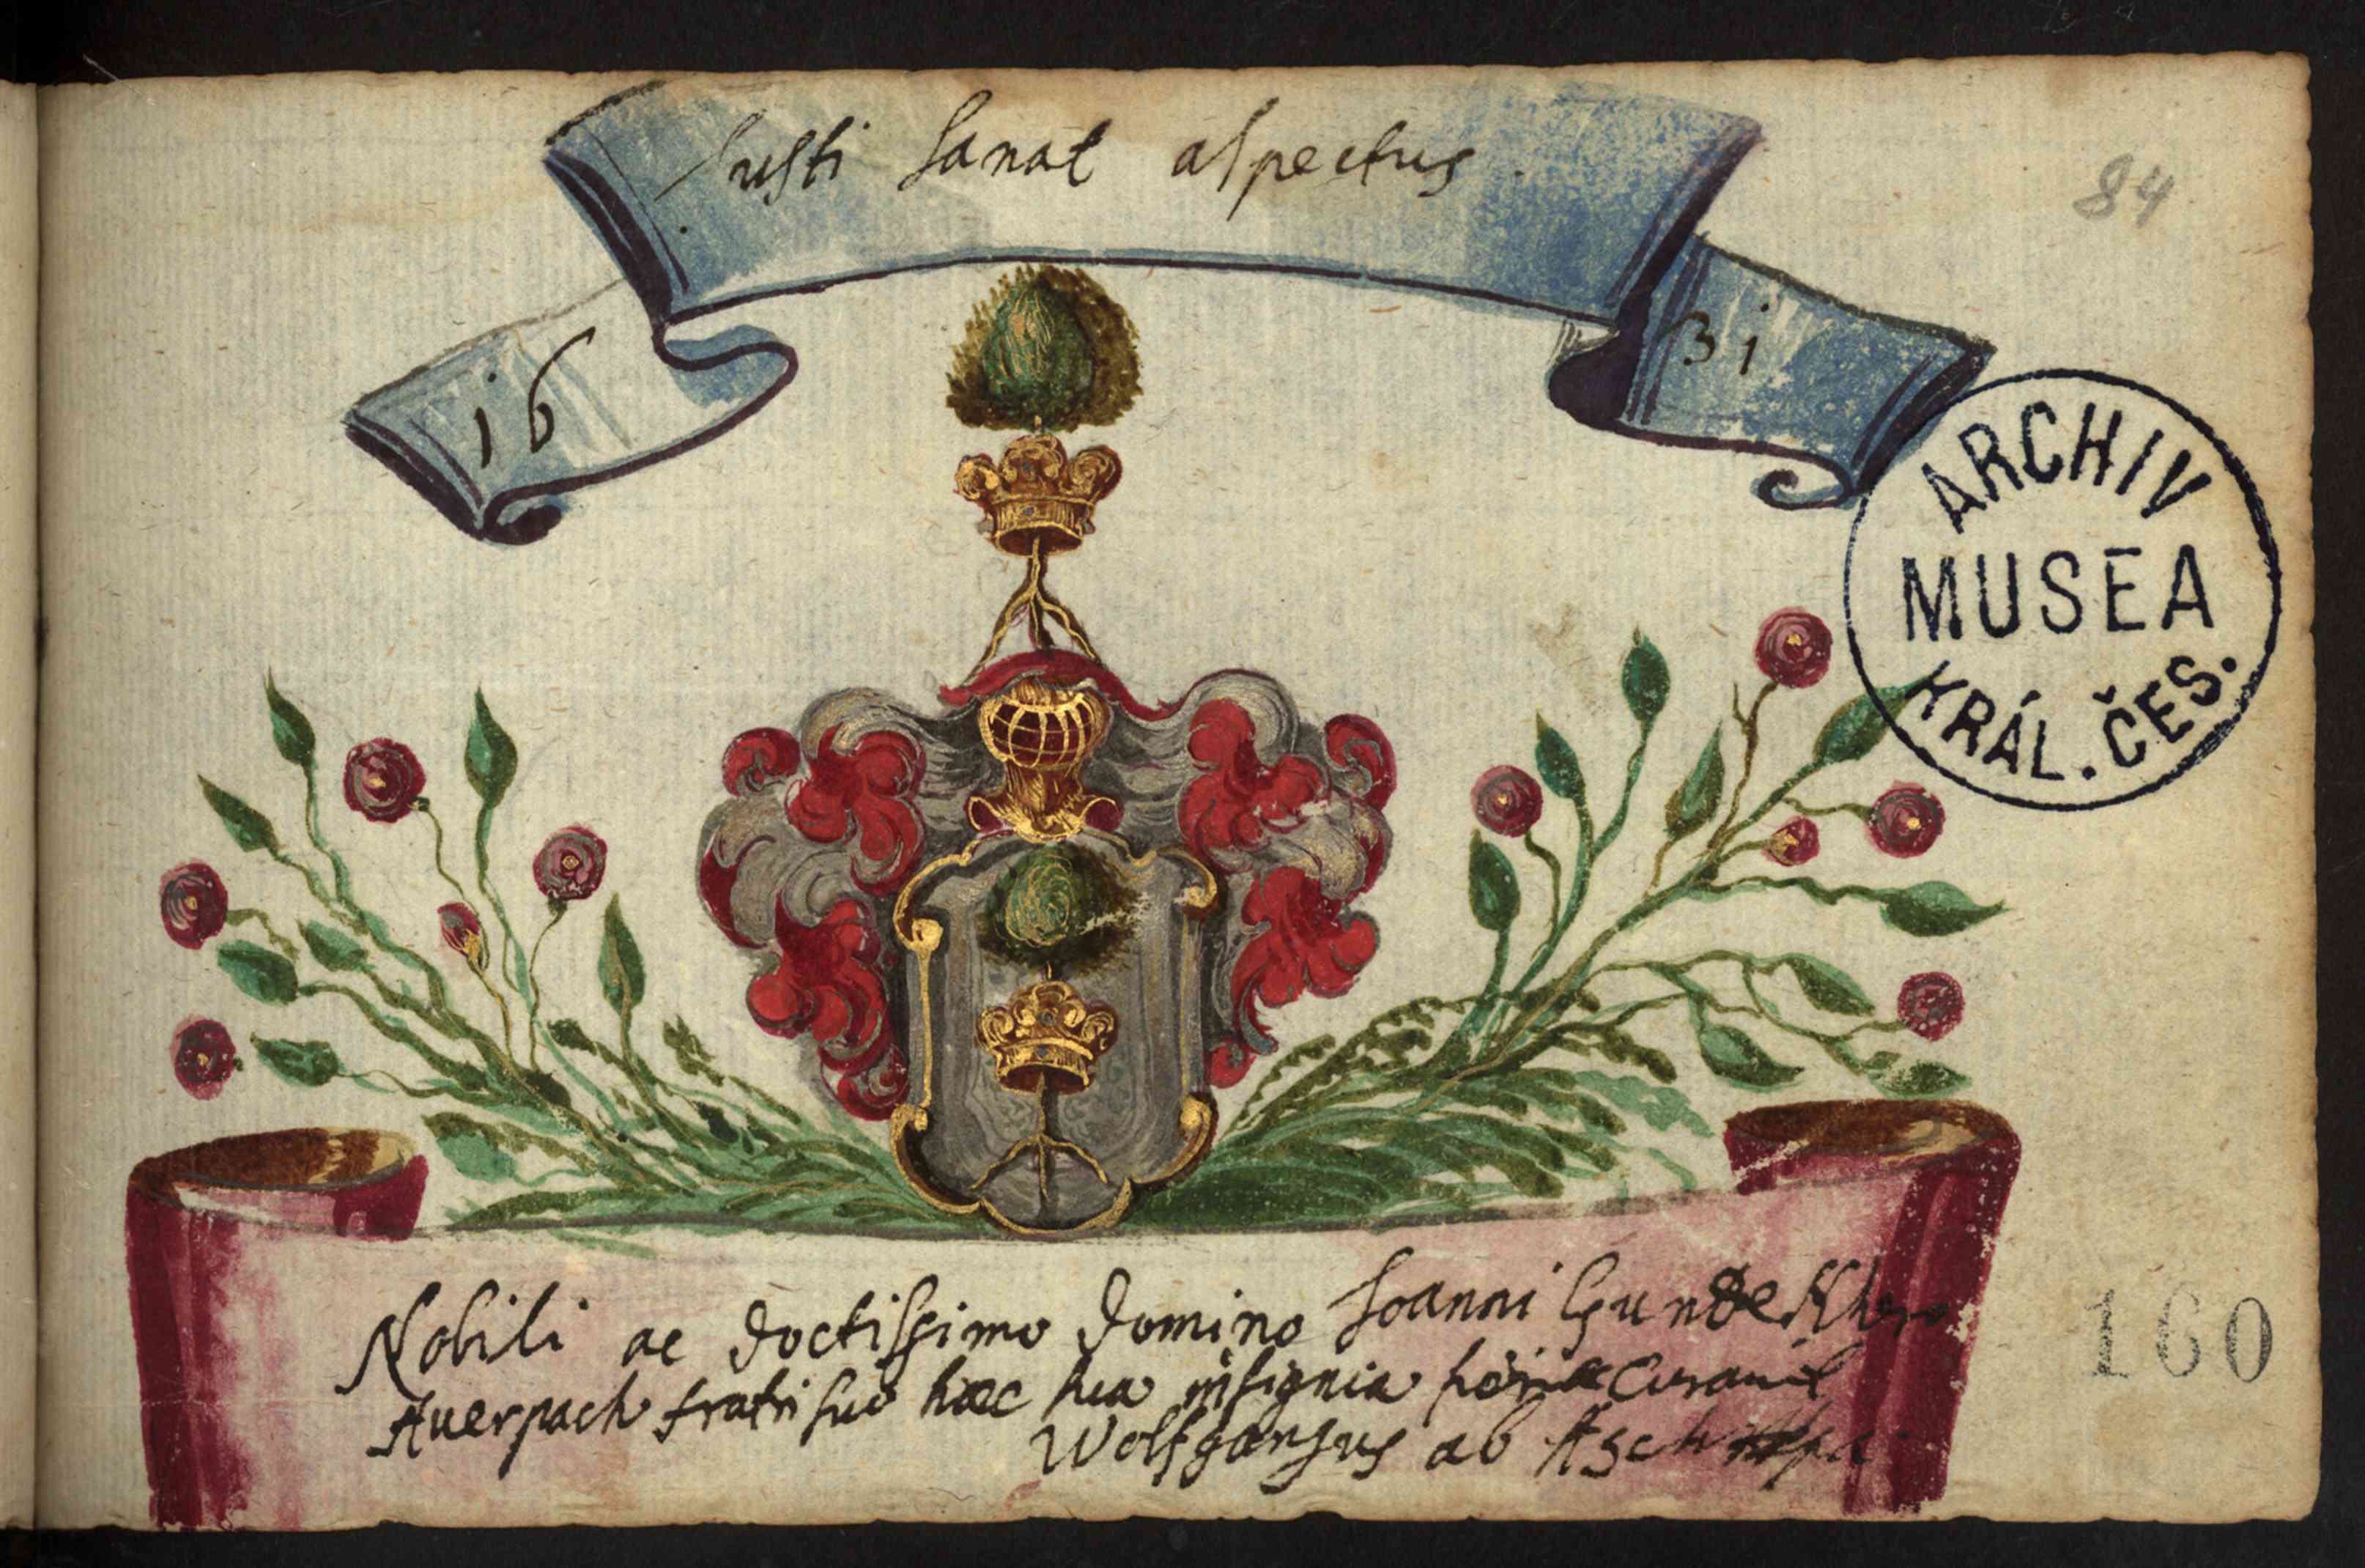 Justi sanat aspectus.
84
16 31
ARCHIV
MUSEA
KRÁL. ČES.
Nobili ac doctissimo Domino Joanni
Auerpach fratri suo haec sua insignia curavit
Wolfgangus ab
160